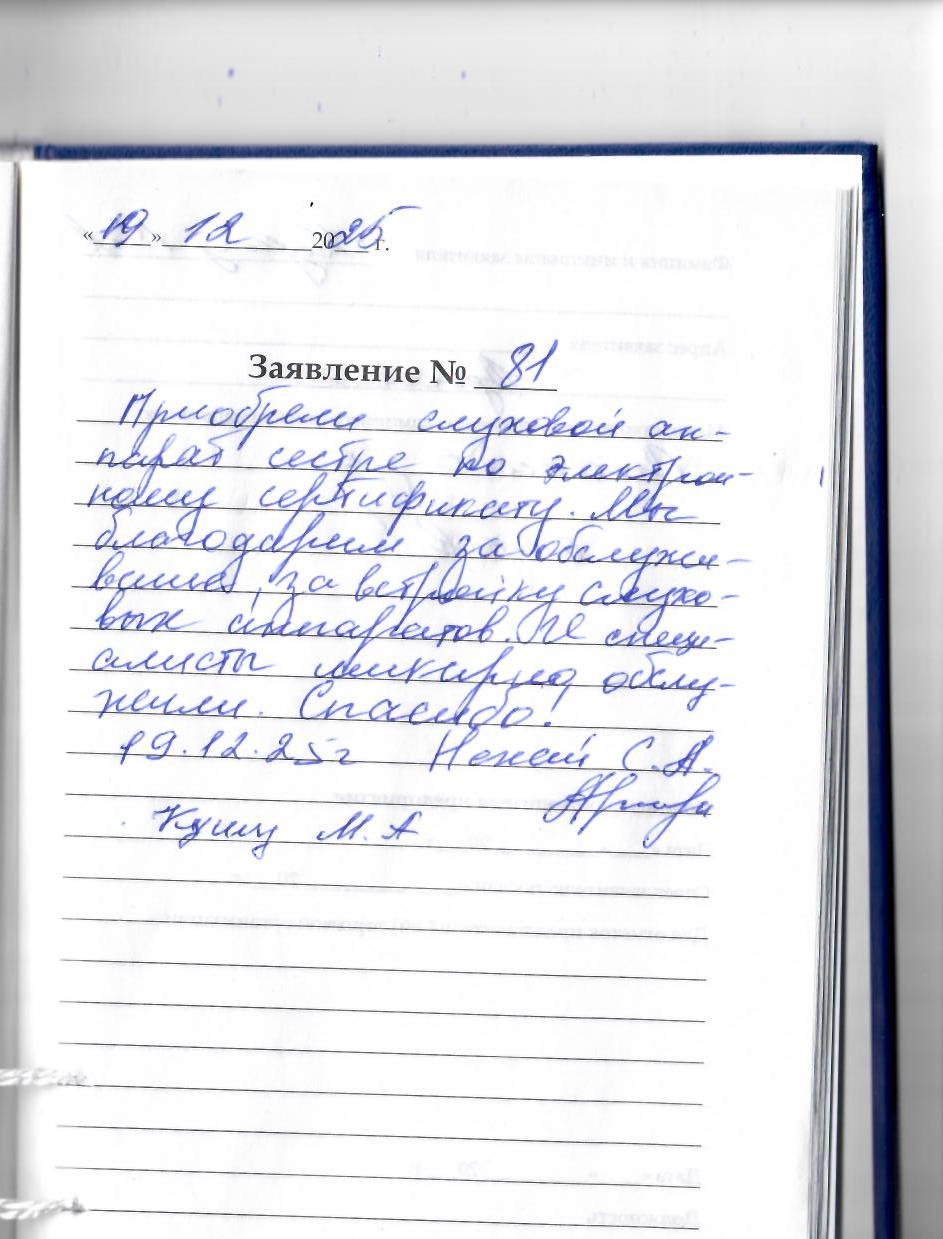 «19» 12 2025 г.
Заявление № 81
Приобрели слуховой ап-
парат сестре по электрон-
ному сертификату. Мы
благодарим за обслужи-
вание, за встройку слухо-
вых аппаратов. Специ-
алисты шикарно обслу-
жили. Спасибо!
19.12.25г С.А.
М. А